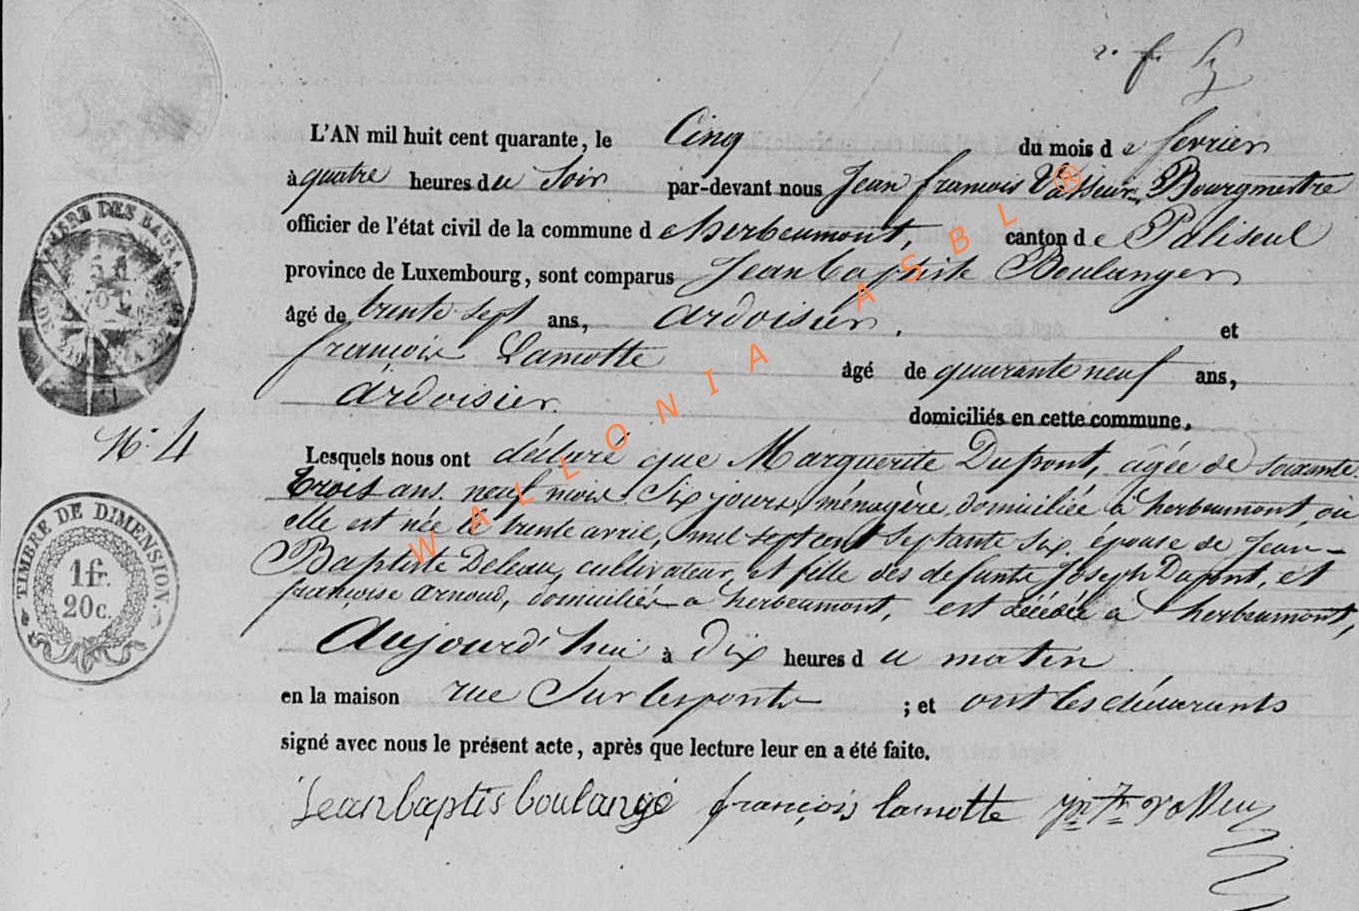 L'AN mil huit cent quarante, le Cinq du mois de fevrier
à quatre heures du Soir par-devant nous Jean francois Vasseur, Bourgmestre
officier de l'état civil de la commune d'herbeumont, canton de Paliseul
province de Luxembourg, sont comparus Jean baptiste Boulanger
âgé de trente sept ans, Ardoisier. et
françois Lamotte âgé de quarante neuf ans,
Ardoisier. domiciliés en cette commune,
N° 4
Lesquels nous ont déclaré que Marguerite Dupont, agée de soixante
trois ans neuf mois six jours, ménagère, domiciliée à herbeumont, où
elle est née le trente avril, mil sept cent septante six, épouse de Jean-
Baptiste Deleau, cultivateur, et fille des defunts Joseph Dupont, et
françoise Arnoud, domiciliés a herbeumont, est décédée a herbeumont,
Aujourd'hui à Dix heures du matin
en la maison rue Sur les ponts ; et ont les déclarants
signé avec nous le présent acte, après que lecture leur en a été faite.
Jean baptis boulangé françois lamotte
TIMBRE DE DIMENSION.
1 fr.
20 c.
WALLONIA ASBL ®